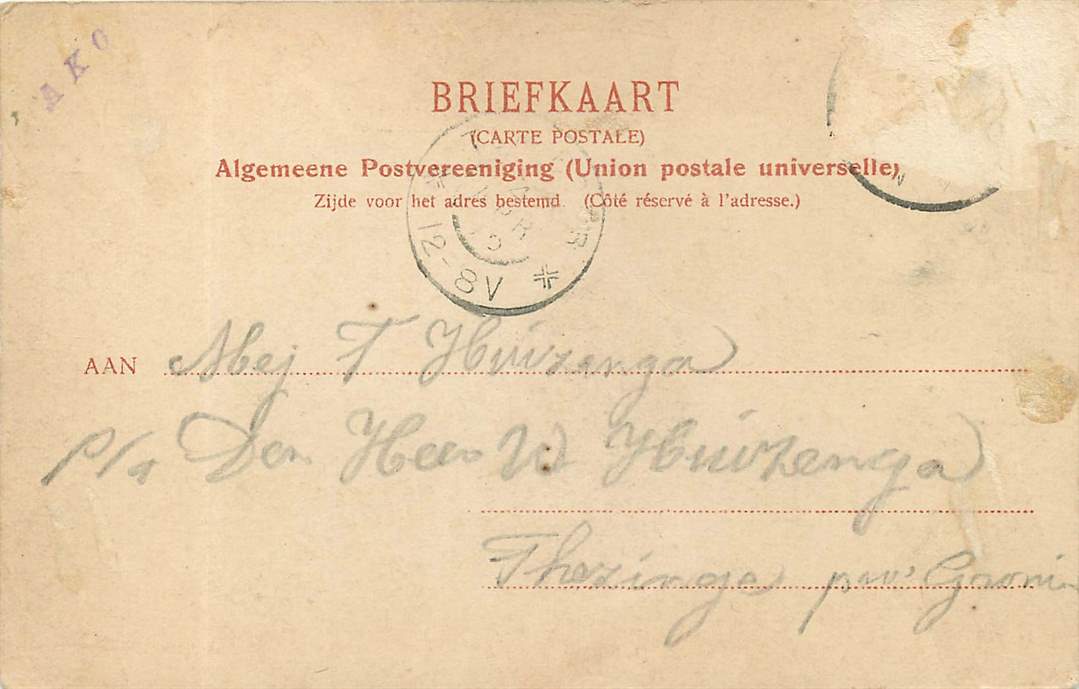 AKO
BRIEFKAART
(CARTE POSTALE)
Algemeene Postvereeniging (Union postale universelle)
Zijde voor het adres bestemd. (Côté réservé à l'adresse.)
APR
12-8V
AAN Mej T Huizenga
p/a Den Heer W Huizenga
Thesinge prov Gronin